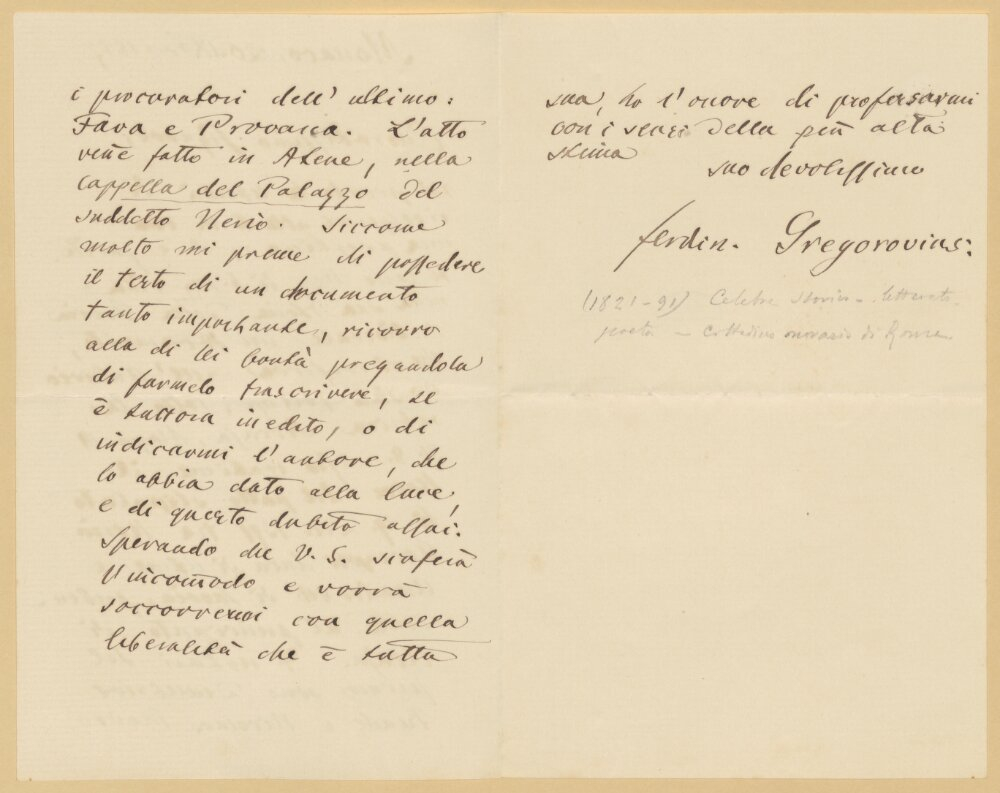 i procuratori dell' ultimo:
Fava e Provana. L'atto
veñe fatto in Atene, nella
Cappella del Palazzo del
suddetto Nerio. Siccome
molto mi preme di possedere
il testo di un documento
tanto importante, ricorro
alla di lei bontà pregandola
di farmelo trascrivere, se
è tuttora inedito, o di
indicarmi l'autore, che
lo abbia dato alla luce,
e di questo dubito assai.
Sperando che V. S. scuserà
l'incomodo e vorrà
soccorrermi con quella
liberalità che è tutta
sua, ho l'onore di professarmi
con i sensi della più alta
stima
suo devotissimo
ferdin. Gregorovius:
(1821-91) Celebre storico - letterato -
poeta - Cittadino onorario di Roma